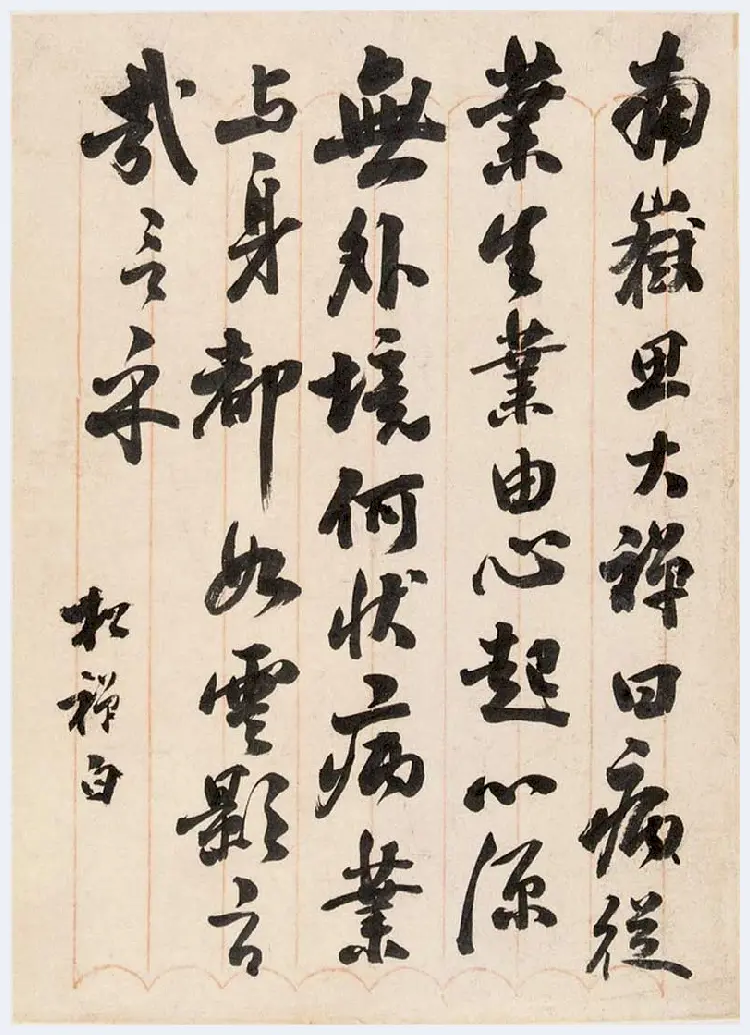 南嶽思大禪曰病從
業生業由心起心源
無外境何状病業
与身都如雲影旨
哉言乎
松禪白